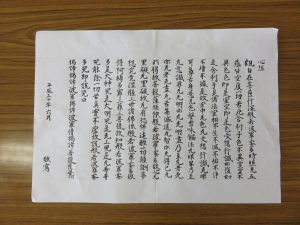 心経
観自在菩薩行深般若波羅蜜多時照見五
蘊皆空度一切苦厄舎利子色不異空空不
異色色即是空空即是色受想行識亦復如
是舎利子是諸法空相不生不滅不垢不浄
不増不減是故空中無色無受想行識無眼
耳鼻舌身意無色声香味触法無眼界乃至
無意識界無無明亦無無明尽乃至無老死
亦無老死尽無苦集滅道無智亦無得以無
所得故菩提薩埵依般若波羅蜜多故心無
罣礙無罣礙故無有恐怖遠離一切顛倒夢
想究竟涅槃三世諸佛依般若波羅蜜多故
得阿耨多羅三藐三菩提故知般若波羅蜜
多是大神呪是大明呪是無上呪是無等等
呪能除一切苦真實不虚故説般若波羅蜜
多呪即説呪曰
羯諦羯諦波羅羯諦波羅僧羯諦菩提薩婆訶
平成三十年六月 敬寫